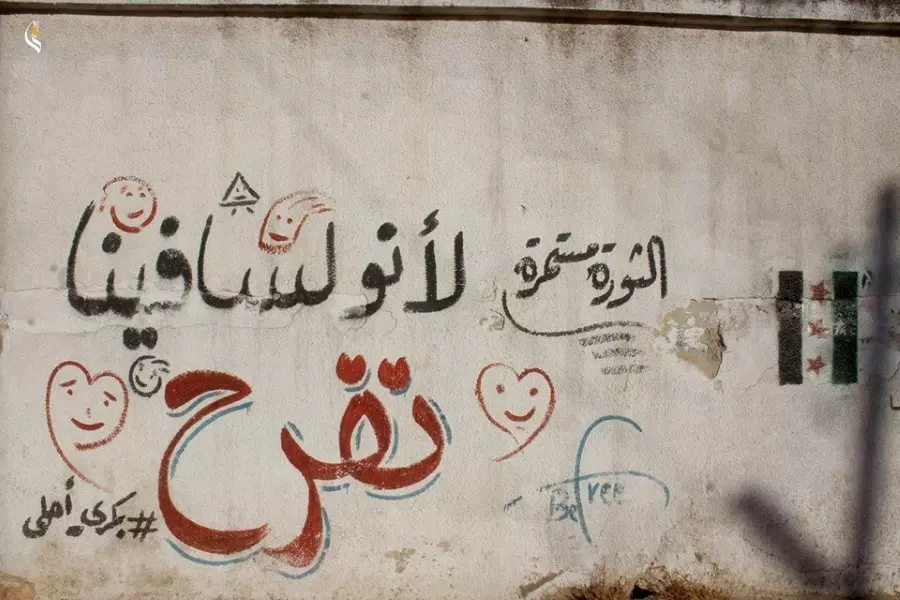 الثورة مستمرة
لأنو لسا فينا
نفرح
#بكرى أحلى
Be free